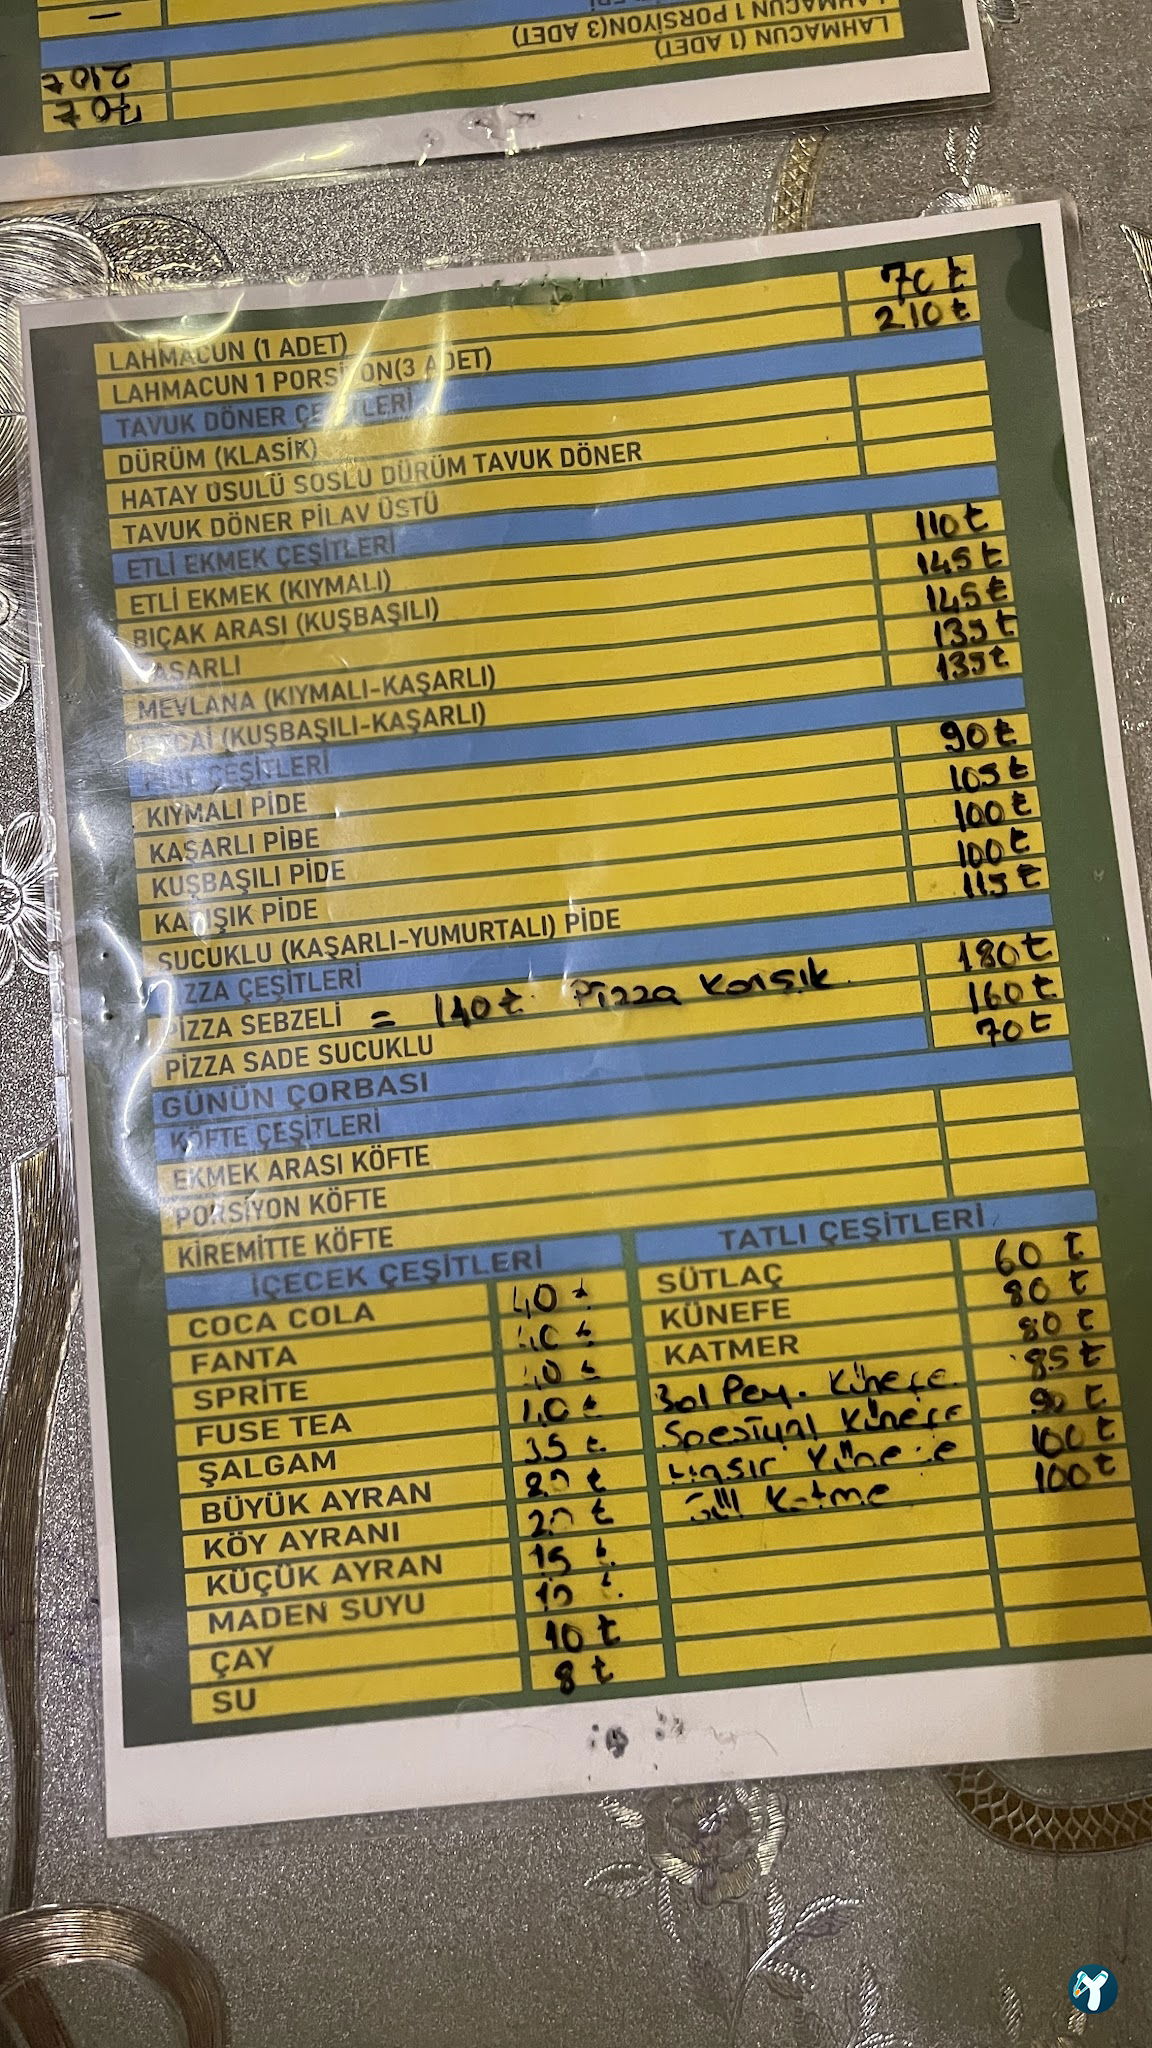 LAHMACUN 1 PORSİYON(3 ADET)
LAHMACUN (1 ADET)
210 ₺
70 ₺
LAHMACUN (1 ADET) 70 ₺
LAHMACUN 1 PORSİYON(3 ADET) 210 ₺
TAVUK DÖNER ÇEŞİTLERİ
DÜRÜM (KLASİK)
HATAY USULÜ SOSLU DÜRÜM TAVUK DÖNER
TAVUK DÖNER PİLAV ÜSTÜ
ETLİ EKMEK ÇEŞİTLERİ
ETLİ EKMEK (KIYMALI) 110 ₺
BIÇAK ARASI (KUŞBAŞILI) 145 ₺
KAŞARLI 145 ₺
MEVLANA (KIYMALI-KAŞARLI) 135 ₺
(KUŞBAŞILI-KAŞARLI) 135 ₺
PİDE ÇEŞİTLERİ
KIYMALI PİDE 90 ₺
KAŞARLI PİBE 105 ₺
KUŞBAŞILI PİDE 100 ₺
KARIŞIK PİDE 100 ₺
SUCUKLU (KAŞARLI-YUMURTALI) PİDE 115 ₺
PİZZA ÇEŞİTLERİ
PİZZA SEBZELİ = 140 ₺ Pizza Karışık 180 ₺
PİZZA SADE SUCUKLU 160 ₺
GÜNÜN ÇORBASI 70 ₺
KÖFTE ÇEŞİTLERİ
EKMEK ARASI KÖFTE
PORSİYON KÖFTE
KİREMİTTE KÖFTE
İÇECEK ÇEŞİTLERİ
COCA COLA 40 ₺
FANTA 40 ₺
SPRİTE 40 ₺
FUSE TEA 40 ₺
ŞALGAM 35 ₺
BÜYÜK AYRAN 20 ₺
KÖY AYRANI 20 ₺
KÜÇÜK AYRAN 15 ₺
MADEN SUYU 10 ₺
ÇAY 10 ₺
SU 8 ₺
TATLI ÇEŞİTLERİ
SÜTLAÇ 60 ₺
KÜNEFE 80 ₺
KATMER 80 ₺
Bol Pey. Künefe 85 ₺
Spesiyal Künefe 90 ₺
Hasır Künefe 100 ₺
Katme 100 ₺